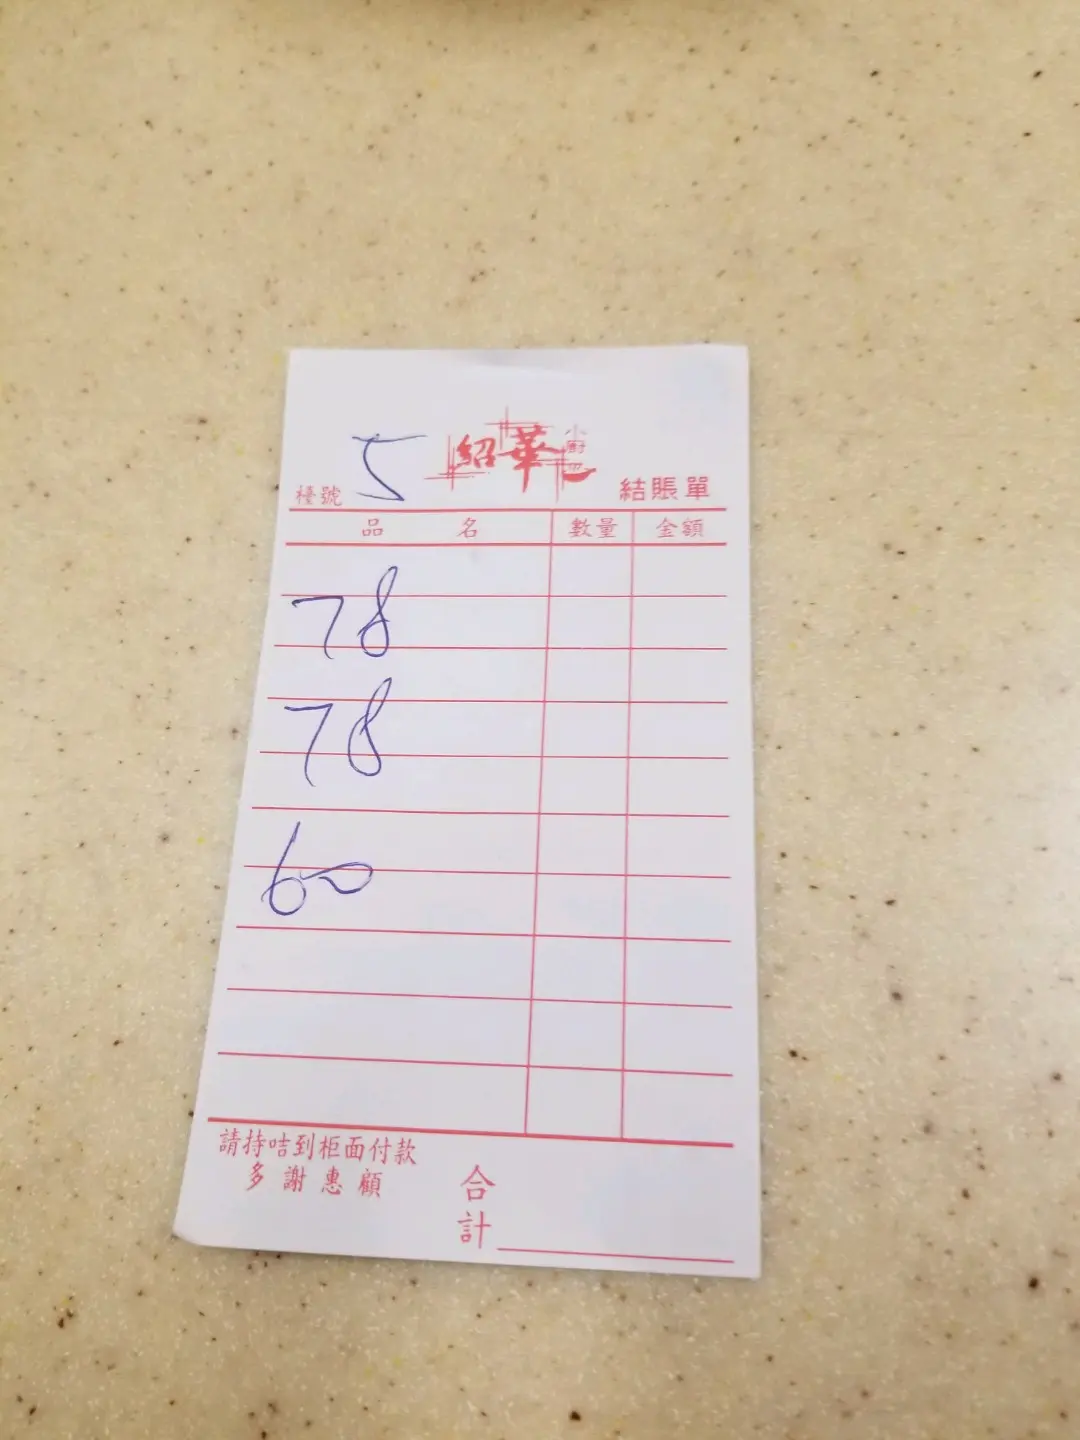 5 紹華 小廚
檯號 結賬單
品 名 數量 金額
78
78
60
請持咭到柜面付款
多謝惠顧
合
計